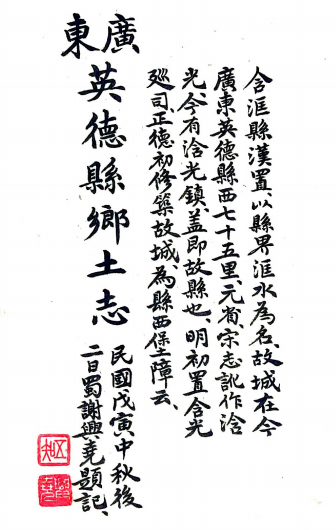 含洭縣漢置、以縣界洭水為名、故城在今
廣東英德縣西七十五里、元省、宋志訛作浛
光、今有浛光鎮、蓋即故縣也、明初置含光
廵司、正德初修築故城、為縣西保障云、
廣東
英德縣鄉土志
民國戊寅中秋後
二日蜀謝興堯題記、